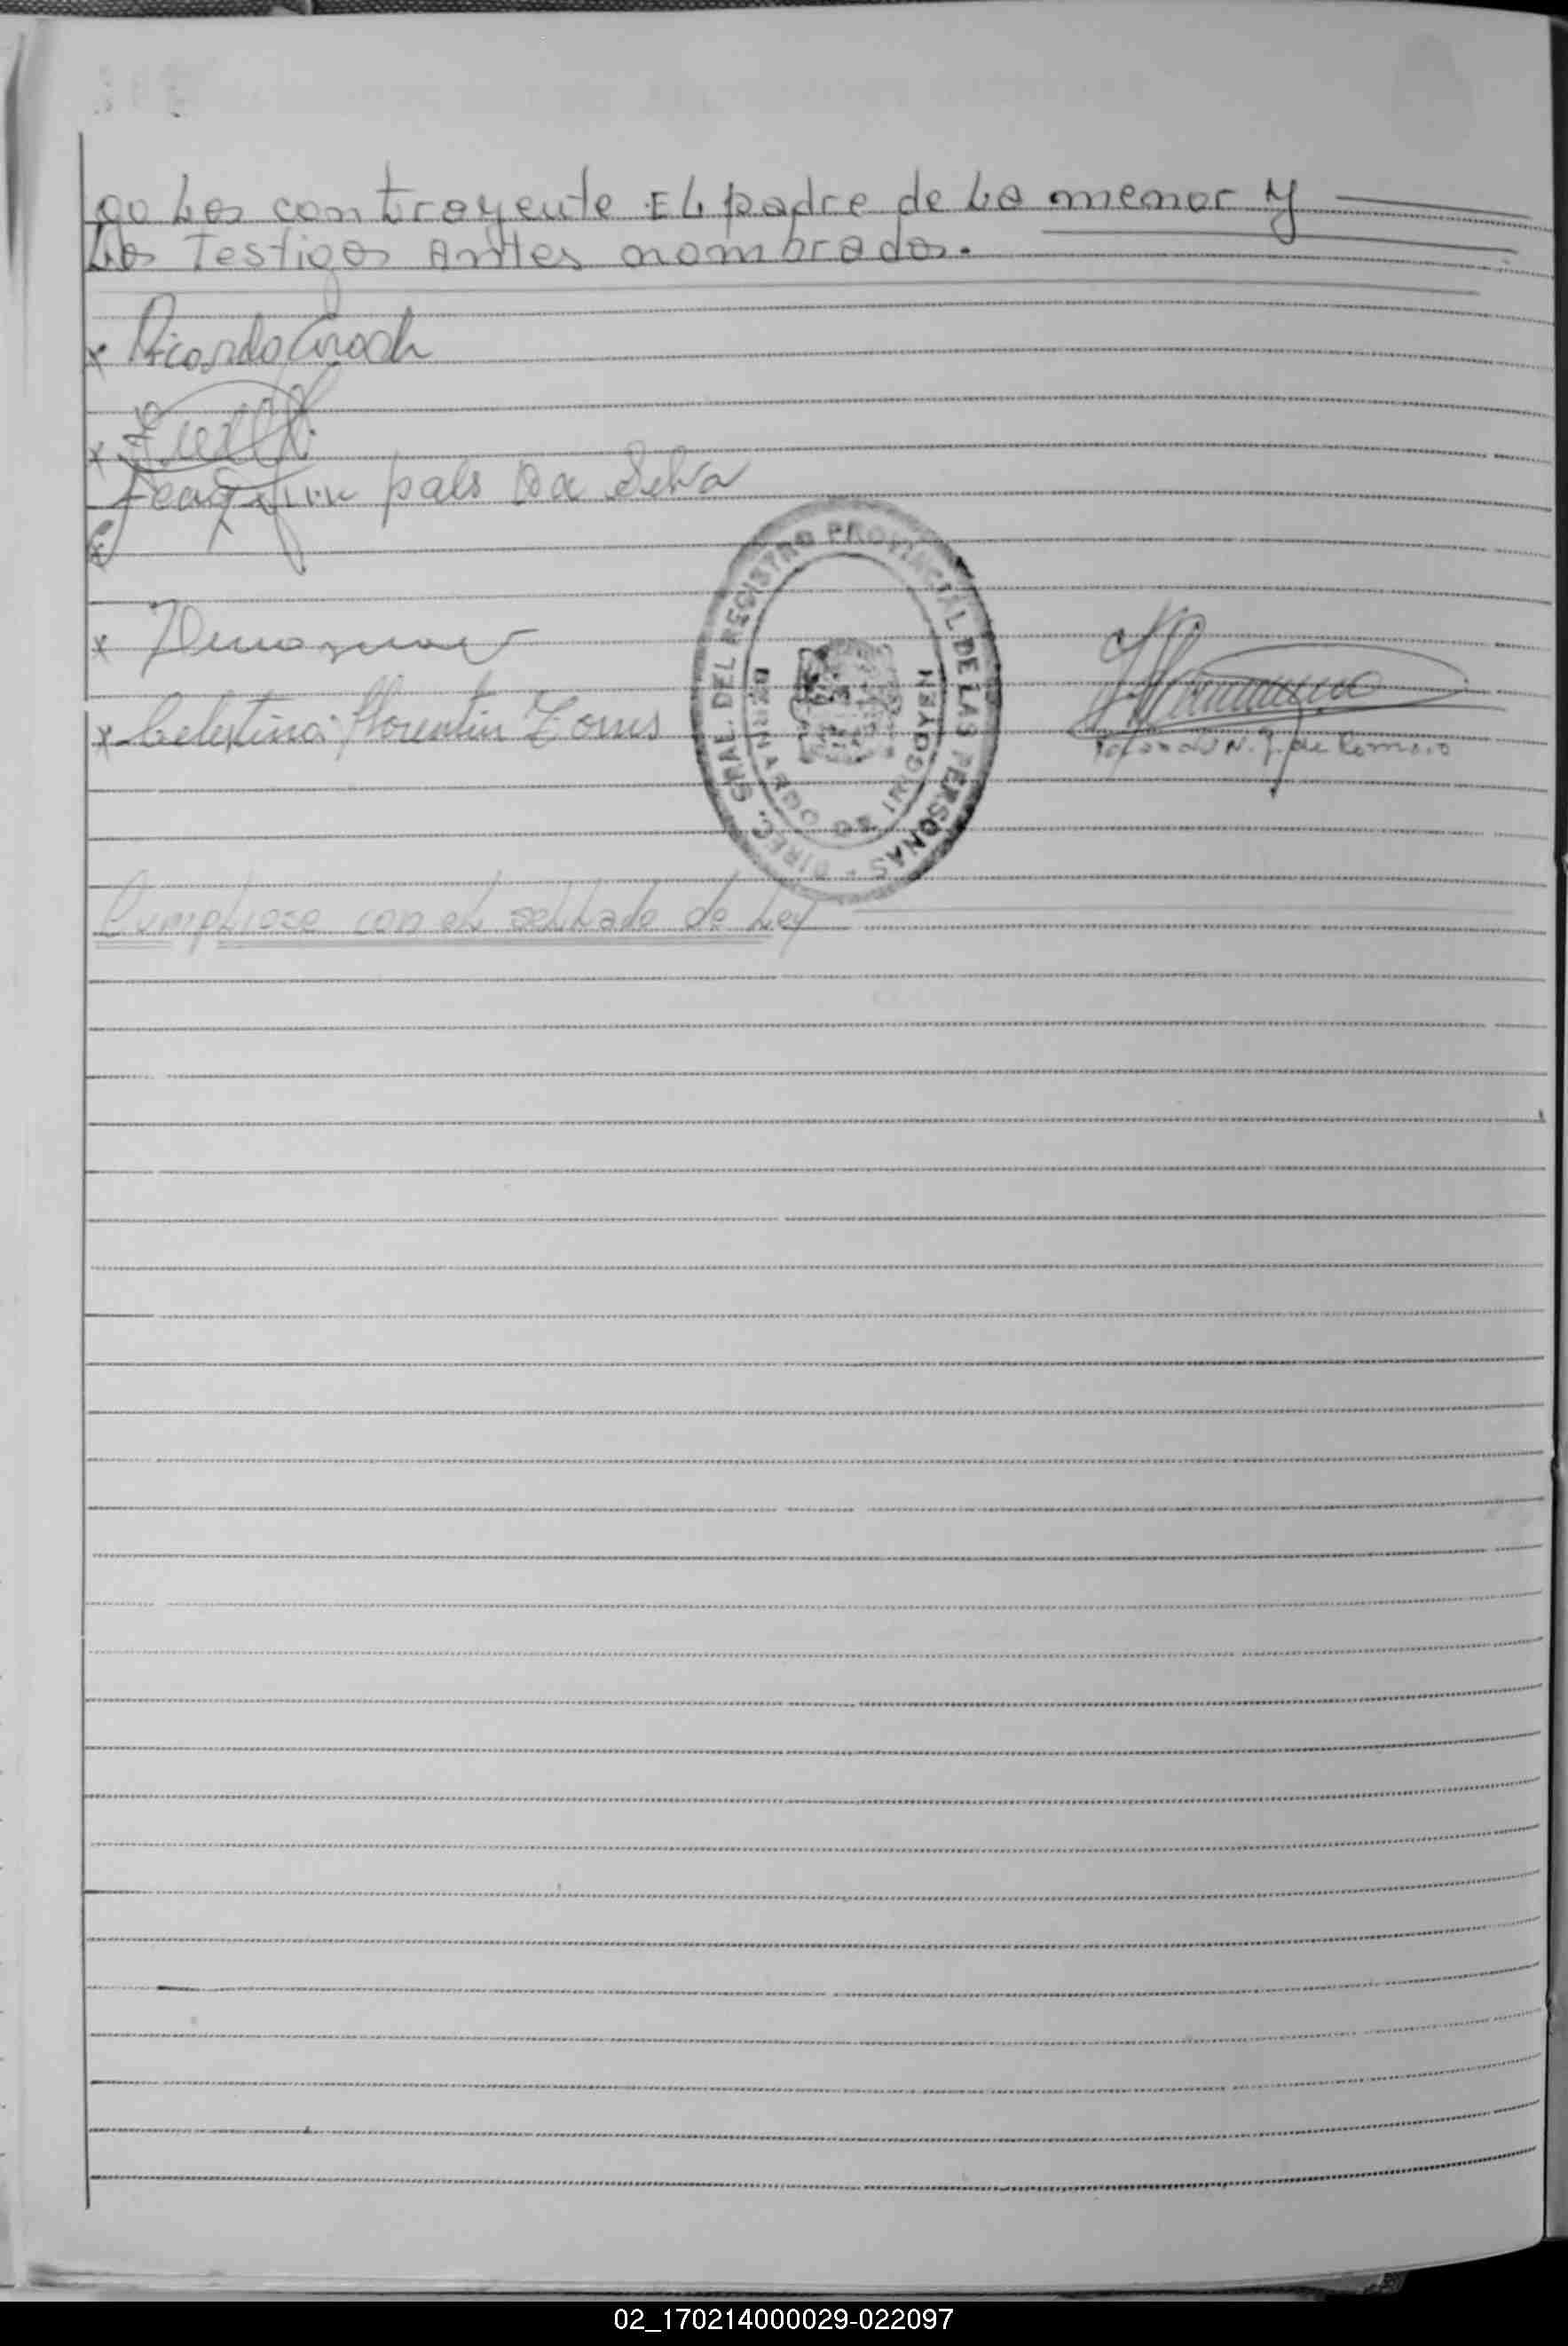 go Los contrayente EL padre de La menor y
Los Testigos Antes nombrados.
x Ricardo Groch
x
pals Da Selva
x
x
x Celestina Florentin Torres
DIREC. GRAL. DEL REGISTRO PROVINCIAL DE LAS PERSONAS
BERNARDO DE IRIGOYEN
N. J. de Romero
Cumpliose con el sellado de Ley
02_170214000029-022097